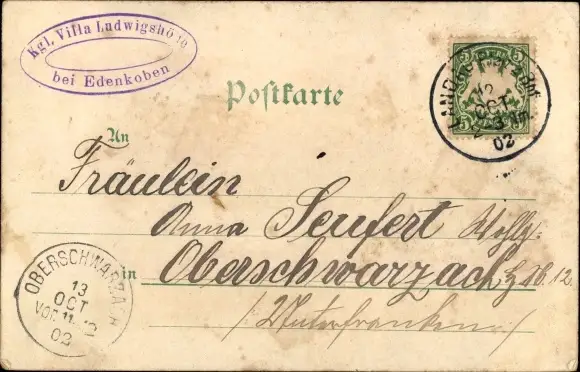 Kgl. Villa Ludwigshöhe
bei Edenkoben
Postkarte
5
LANDAU
12
OCT
02
An
Fräulein
Anna Seufert
in Oberschwarzach H. N. 12.
/Unterfranken/
OBERSCHWARZACH
13
OCT
VOR. 11-12
02